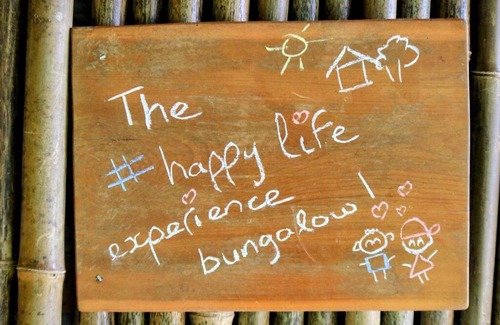 The
# happy life
experience
bungalow!